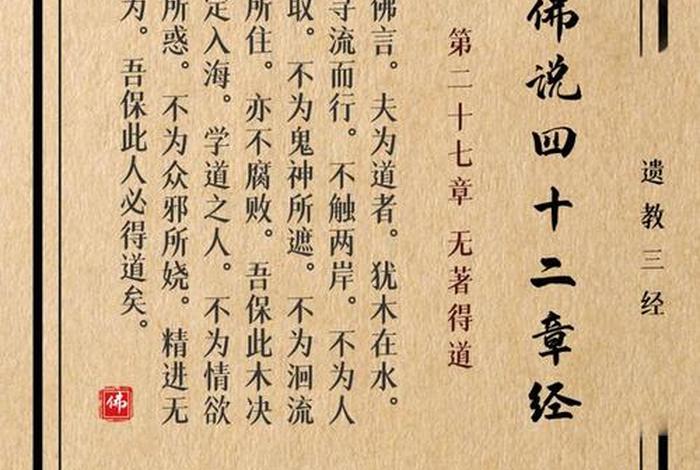 遗教三经
佛说四十二章经
第二十七章 无著得道
佛言。夫为道者。犹木在水。
寻流而行。不触两岸。不为人
取。不为鬼神所遮。不为洄流
所住。亦不腐败。吾保此木决
定入海。学道之人。不为情欲
所惑。不为众邪所娆。精进无
为。吾保此人必得道矣。
佛